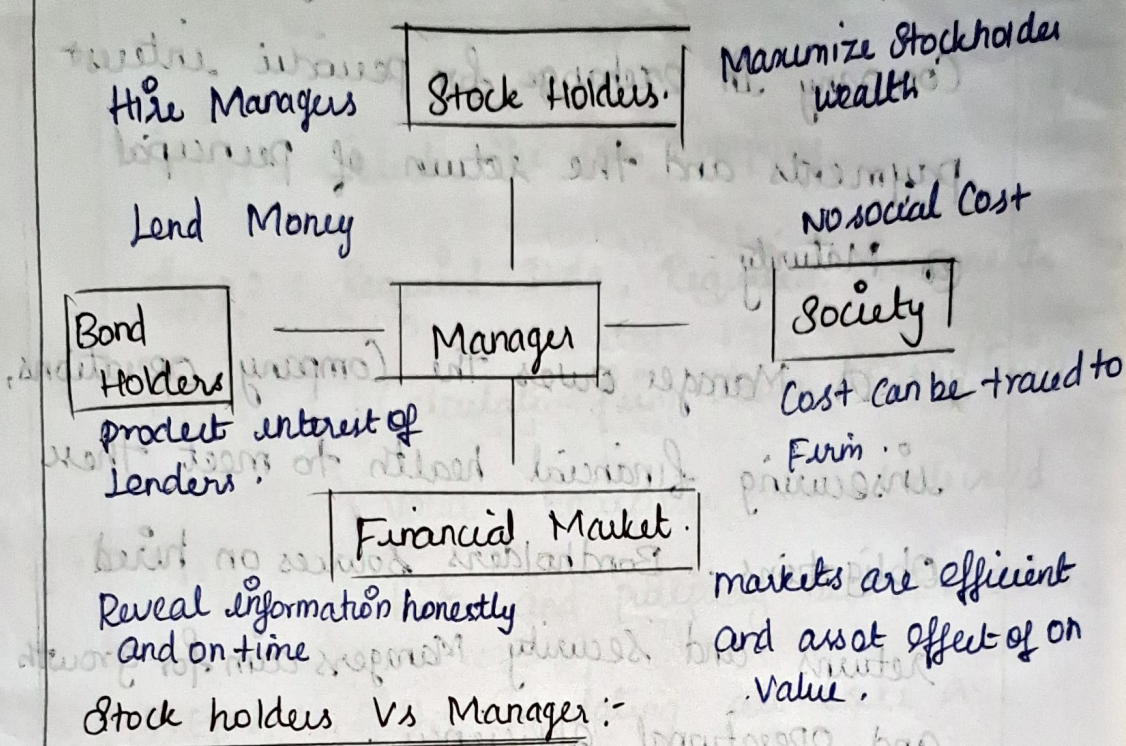 Hire Managers
Stock Holders.
Maximize Stockholder
wealth
Lend Money
No social Cost
Bond
Holders
Manager
Society
product interest of
Lenders.
Cost can be traced to
Firm.
Financial Market.
Reveal information honestly
and on time
markets are efficient
and assot effect of on
value.
Stock holders Vs Manager :-